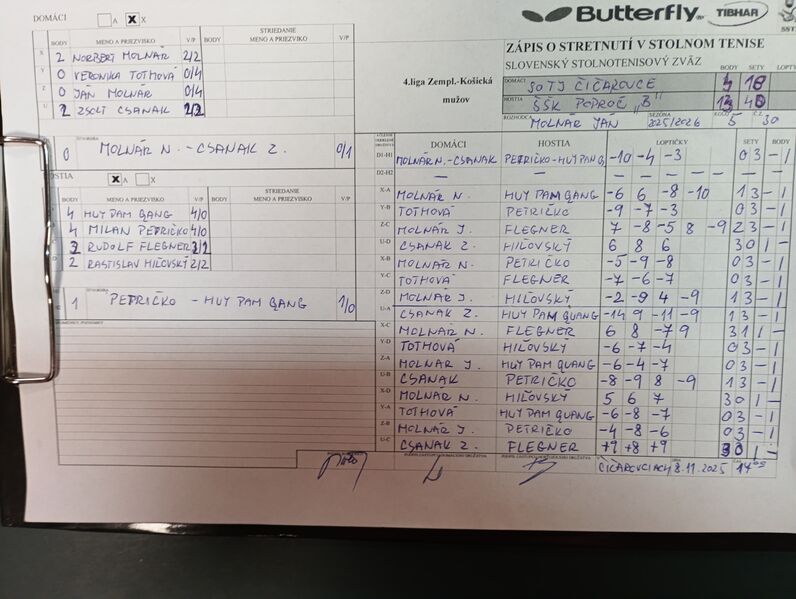 DOMÁCI A X X
Butterfly TIBHAR
SST
BODY MENO A PRIEZVISKO V/P BODY STRIEDANIE MENO A PRIEZVISKO V/P
X 2 NORBERT MOLNÁR 2/2
Y 0 VERONIKA TOTHOVÁ 0/4
Z 0 JÁN MOLNÁR 0/4
U 2 ZSOLT CSANAK 2/2
0 MOLNÁR N. - CSANAK Z. 0/1
HOSTIA X A X
BODY MENO A PRIEZVISKO V/P BODY STRIEDANIE MENO A PRIEZVISKO V/P
4 HUY PAM GANG 4/0
4 MILAN PETRIČKO 4/0
3 RUDOLF FLEGNER 3/1
2 RASTISLAV HIĽOVSKÝ 2/2
1 PETRIČKO - HUY PAM GANG 1/0
4.liga Zempl.-Košická
mužov
ZÁPIS O STRETNUTÍ V STOLNOM TENISE
SLOVENSKÝ STOLNOTENISOVÝ ZVÄZ BODY SETY LOPTY
DOMÁCI SOTJ ČIČAROVCE
HOSTIA ŠŠK POPROČ „B"
ROZHODCA MOLNÁR JÁN SEZÓNA 2025/2026 KOLO 5 Č.Z. 30
DOMÁCI HOSTIA LOPTIČKY SETY BODY
D1-H1 MOLNÁR N.-CSANAK PETRIČKO-HUY PAM G -10 -4 -3 0 3 - 1
D2-H2 — — — — — — — —
X-A MOLNÁR N. HUY PAM GANG -6 6 -8 -10 1 3 - 1
Y-B TOTHOVÁ PETRIČKO -9 -7 -3 0 3 - 1
Z-C MOLNÁR J. FLEGNER 7 -8 -5 8 -9 2 3 - 1
U-D CSANAK Z. HIĽOVSKÝ 6 8 6 3 0 1 -
X-B MOLNÁR N. PETRIČKO -5 -9 -8 0 3 - 1
Y-C TOTHOVÁ FLEGNER -7 -6 -7 0 3 - 1
Z-D MOLNÁR J. HIĽOVSKÝ -2 -9 4 -9 1 3 - 1
U-A CSANAK Z. HUY PAM QUANG -14 9 -11 -9 1 3 - 1
X-C MOLNÁR N. FLEGNER 6 8 -7 9 3 1 1 -
Y-D TOTHOVÁ HIĽOVSKÝ -6 -7 -4 0 3 - 1
Z-A MOLNÁR J. HUY PAM QUANG -6 -4 -7 0 3 - 1
U-B CSANAK PETRIČKO -8 -9 8 -9 1 3 - 1
X-D MOLNÁR N. HIĽOVSKÝ 5 6 7 3 0 1 -
Y-A TOTHOVÁ HUY PAM QUANG -6 -8 -7 0 3 - 1
Z-B MOLNÁR J. PETRIČKO -4 -8 -6 0 3 - 1
U-C CSANAK Z. FLEGNER +9 +8 +9 3 0 1 -
ČIČAROVCIACH 8.11.2025 14